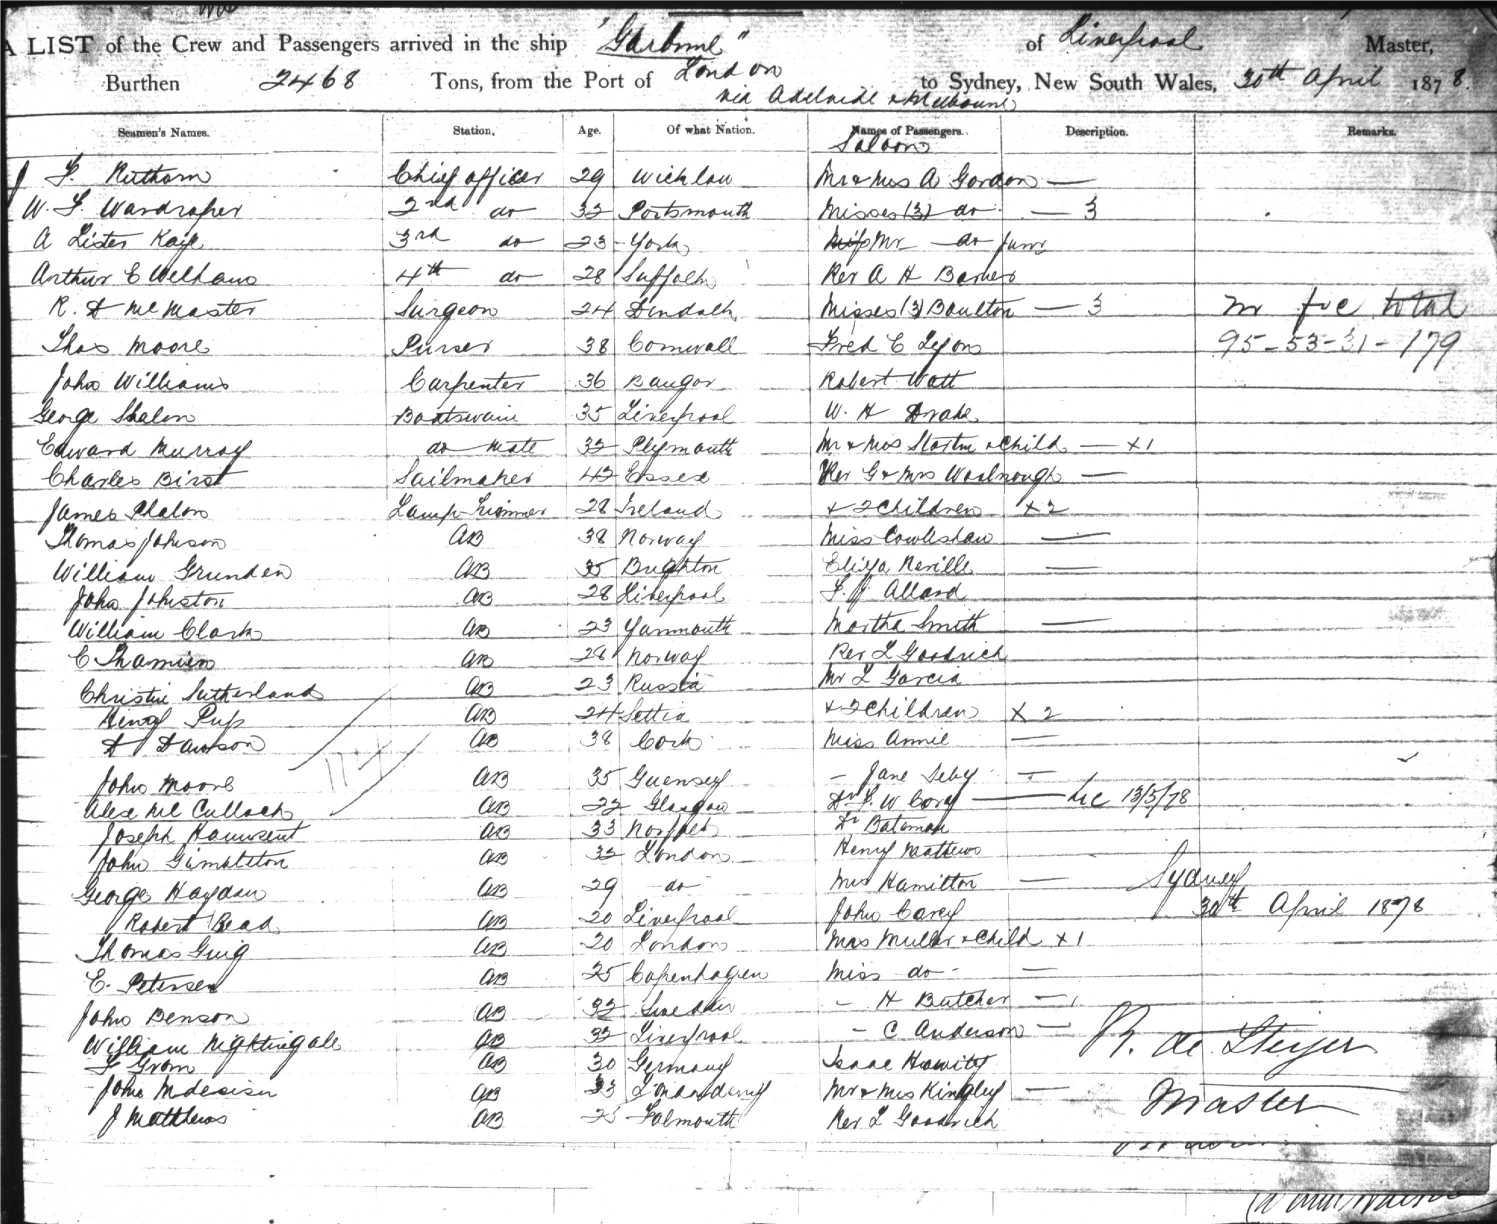 A LIST of the Crew and Passengers arrived in the ship "Garonne" of Liverpool Master,
Burthen 2468 Tons, from the Port of London to Sydney, New South Wales, 30th April 1878.
via Adelaide & Melbourne
Seamen's Names. Station. Age. Of what Nation. Names of Passengers. Description. Remarks.
Saloon
J F. Ruthom Chief officer 29 Wicklow Mr & Mrs A Gordon —
W. F. Wardroper 2nd do 32 Portsmouth Misses (3) do — 3
A Lister Kaye 3rd do 23 York Mr do Junr
Arthur E Welhams 4th do 28 Suffolk Rev A H Barnes
R. D McMaster Surgeon 24 Dundalk Misses (3) Boulton — 3 m f c total
Thos Moore Purser 38 Cornwall Fred C Lyons 95-53-31-179
John Williams Carpenter 36 Bangor Robert Watt
George Boatswain 35 Liverpool W. H Drake
Edward Murray do Mate 32 Plymouth Mr & Mrs & Child — x1
Charles Birst Sailmaker 42 Essex Rev G & Mrs Woolnough —
James Phelon Lamp Trimmer 28 Ireland & 2 Children x 2
Thomas Johnson AB 38 Norway Miss Cowlishaw —
William Grunden AB 35 Brighton Eliza Neville —
John Johnston AB 28 Liverpool F. J Allard
William Clark AB 23 Yarmouth Martha Smith —
C AB 28 Norway Rev L Goodrich
Christie Sutherland AB 23 Russia Mr L Garcia
Henry AB 24 & 2 Children x 2
D Dawson AB 38 Cork Miss Annie —
John Moore AB 35 Guernsey — Jane —
Alex McCulloch AB 22 Glasgow Dr W Cory — 13/5/78
Joseph AB 33 Norfolk Dr Bateman
John AB 32 London Henry Mathews
George Haydon AB 29 do Mrs Hamilton — Sydney
Robert Read AB 20 Liverpool John Carey 30th April 1878
Thomas AB 20 London Mrs Muller & Child x 1
E. Petersen AB 25 Copenhagen Miss do —
John Benson AB 32 Sweden — H Butcher —
William Nightingale AB 32 Liverpool — C Anderson — R. de Steiger
F Grom AB 30 Germany Isaac Howitz
John AB 33 Londonderry Mr & Mrs Kingley — Master
J Matthews AB 25 Falmouth Rev L Goodrich